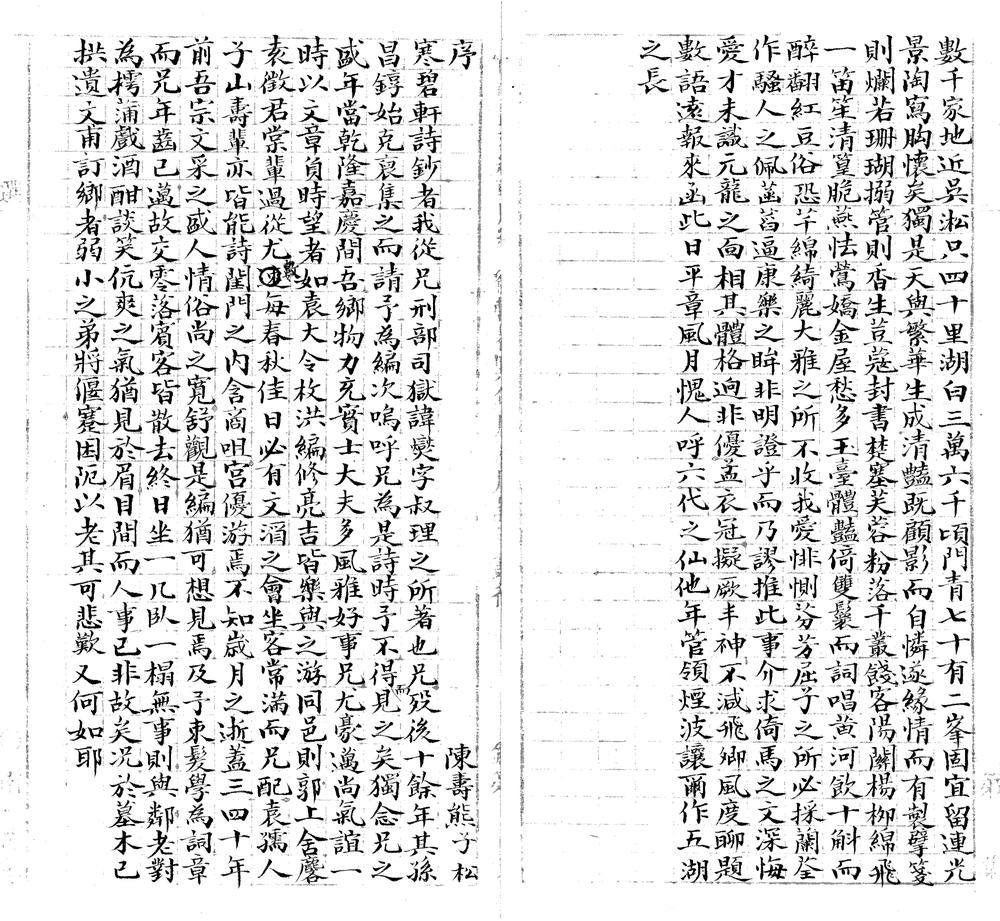 數千家地近吳淞只四十里湖白三萬六千頃門青七十有二峯固宜留連光
景陶寫胸懷矣獨是天與繁華生成清豔既顧影而自憐遂緣情而有製擘箋
則爛若珊瑚搦管則香生荳蔻封書楚塞芙蓉粉落千叢餞客陽關楊柳綿飛
一笛笙清簧脆燕怯鶯嬌金屋愁多玉臺體豔倚雙鬟而詞唱黃河飲十斛而
醉翻紅豆俗恐芊綿綺麗大雅之所不收我愛悱惻芬芳屈子之所必採蘭荃
作騷人之佩菡萏逼康樂之眸非明證乎而乃謬推此事介求倚馬之文深悔
愛才未識元龍之面相其體格迥非優孟衣冠擬厥丰神不減飛卿風度聊題
數語遠報來函此日平章風月愧人呼六代之仙他年管領煙波讓爾作五湖
之長
序　陳壽熊子松
寒碧軒詩鈔者我從兄刑部司獄諱燮字叔理之所著也兄歿後十餘年其孫
昌錞始克裒集之而請予為編次嗚呼兄為是詩時予不得而見之矣獨念兄之
盛年當乾隆嘉慶間吾鄉物力充實士大夫多風雅好事兄尤豪邁尚氣誼一
時以文章負時望者如袁大令枚洪編修亮吉皆樂與之游同邑則郭上舍麐
袁徵君棠輩過從尤數每春秋佳日必有文酒之會坐客常滿而兄配袁孺人
子山壽輩亦皆能詩閨門之內含商咀宮優游焉不知歲月之逝蓋三四十年
前吾宗文采之盛人情俗尚之寬舒觀是編猶可想見焉及予束髮學為詞章
而兄年齒已邁故交零落賓客皆散去終日坐一几臥一榻無事則與鄰老對
為樗蒲戲酒酣談笑伉爽之氣猶見於眉目間而人事已非故矣況於墓木已
拱遺文甫訂鄉者弱小之弟將偃蹇困阨以老其可悲歎又何如耶